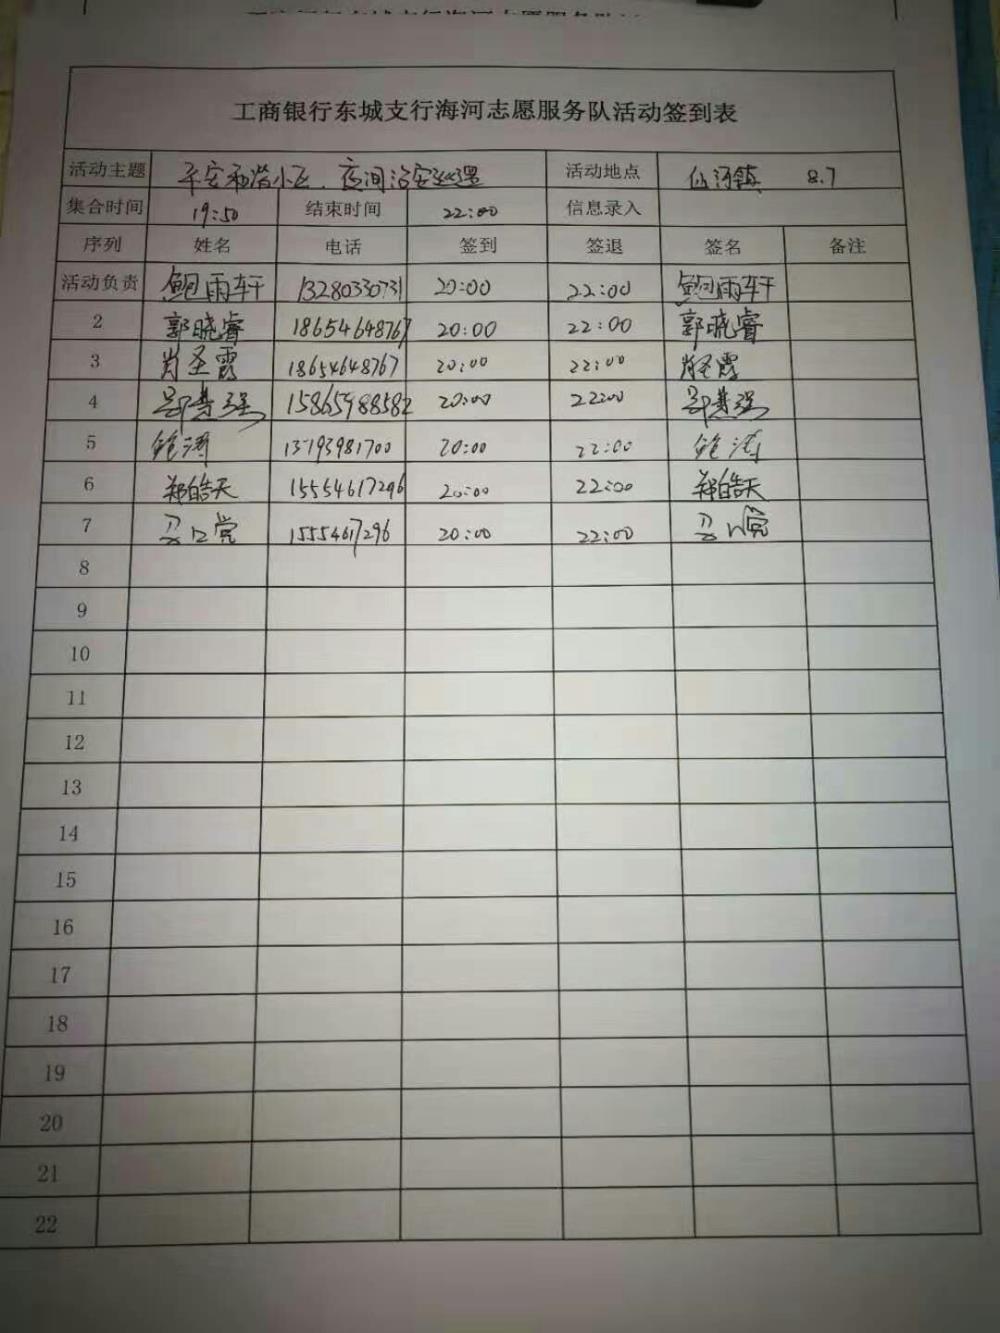 工商银行东城支行海河志愿服务队活动签到表
活动主题 平安和谐小区、夜间治安巡逻 活动地点 仙河镇 8.7
集合时间 19:50 结束时间 22:00 信息录入
序列 姓名 电话 签到 签退 签名 备注
活动负责 鲍雨轩 13280330731 20:00 22:00 鲍雨轩
2 郭晓睿 18654648767 20:00 22:00 郭晓睿
3 肖圣霞 18654648767 20:00 22:00 肖圣霞
4 15865988582 20:00 22:00
5 鲍涛 13793981700 20:00 22:00 鲍涛
6 郑皓天 15554617296 20:00 22:00 郑皓天
7 15554617296 20:00 22:00
8
9
10
11
12
13
14
15
16
17
18
19
20
21
22